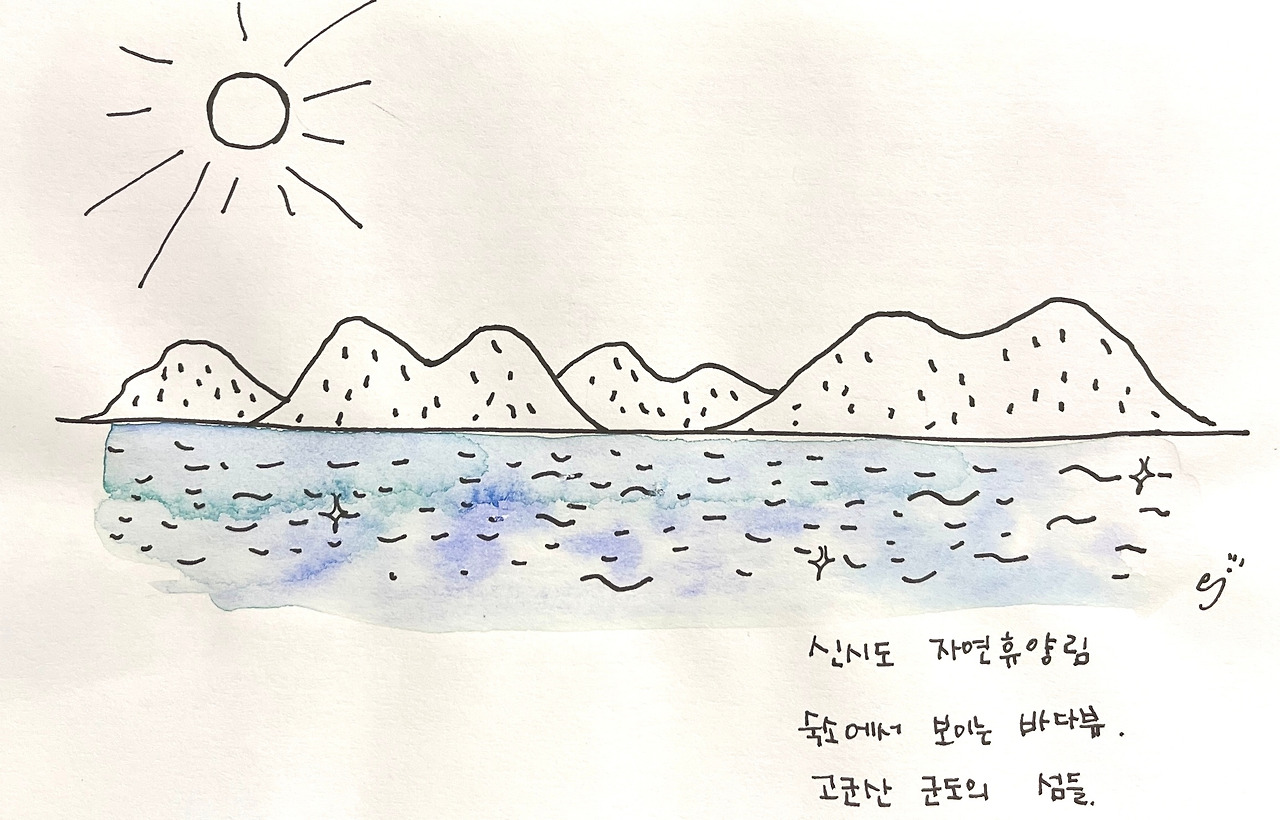 신시도 자연휴양림
숙소에서 보이는 바다뷰.
고군산 군도의 섬들.